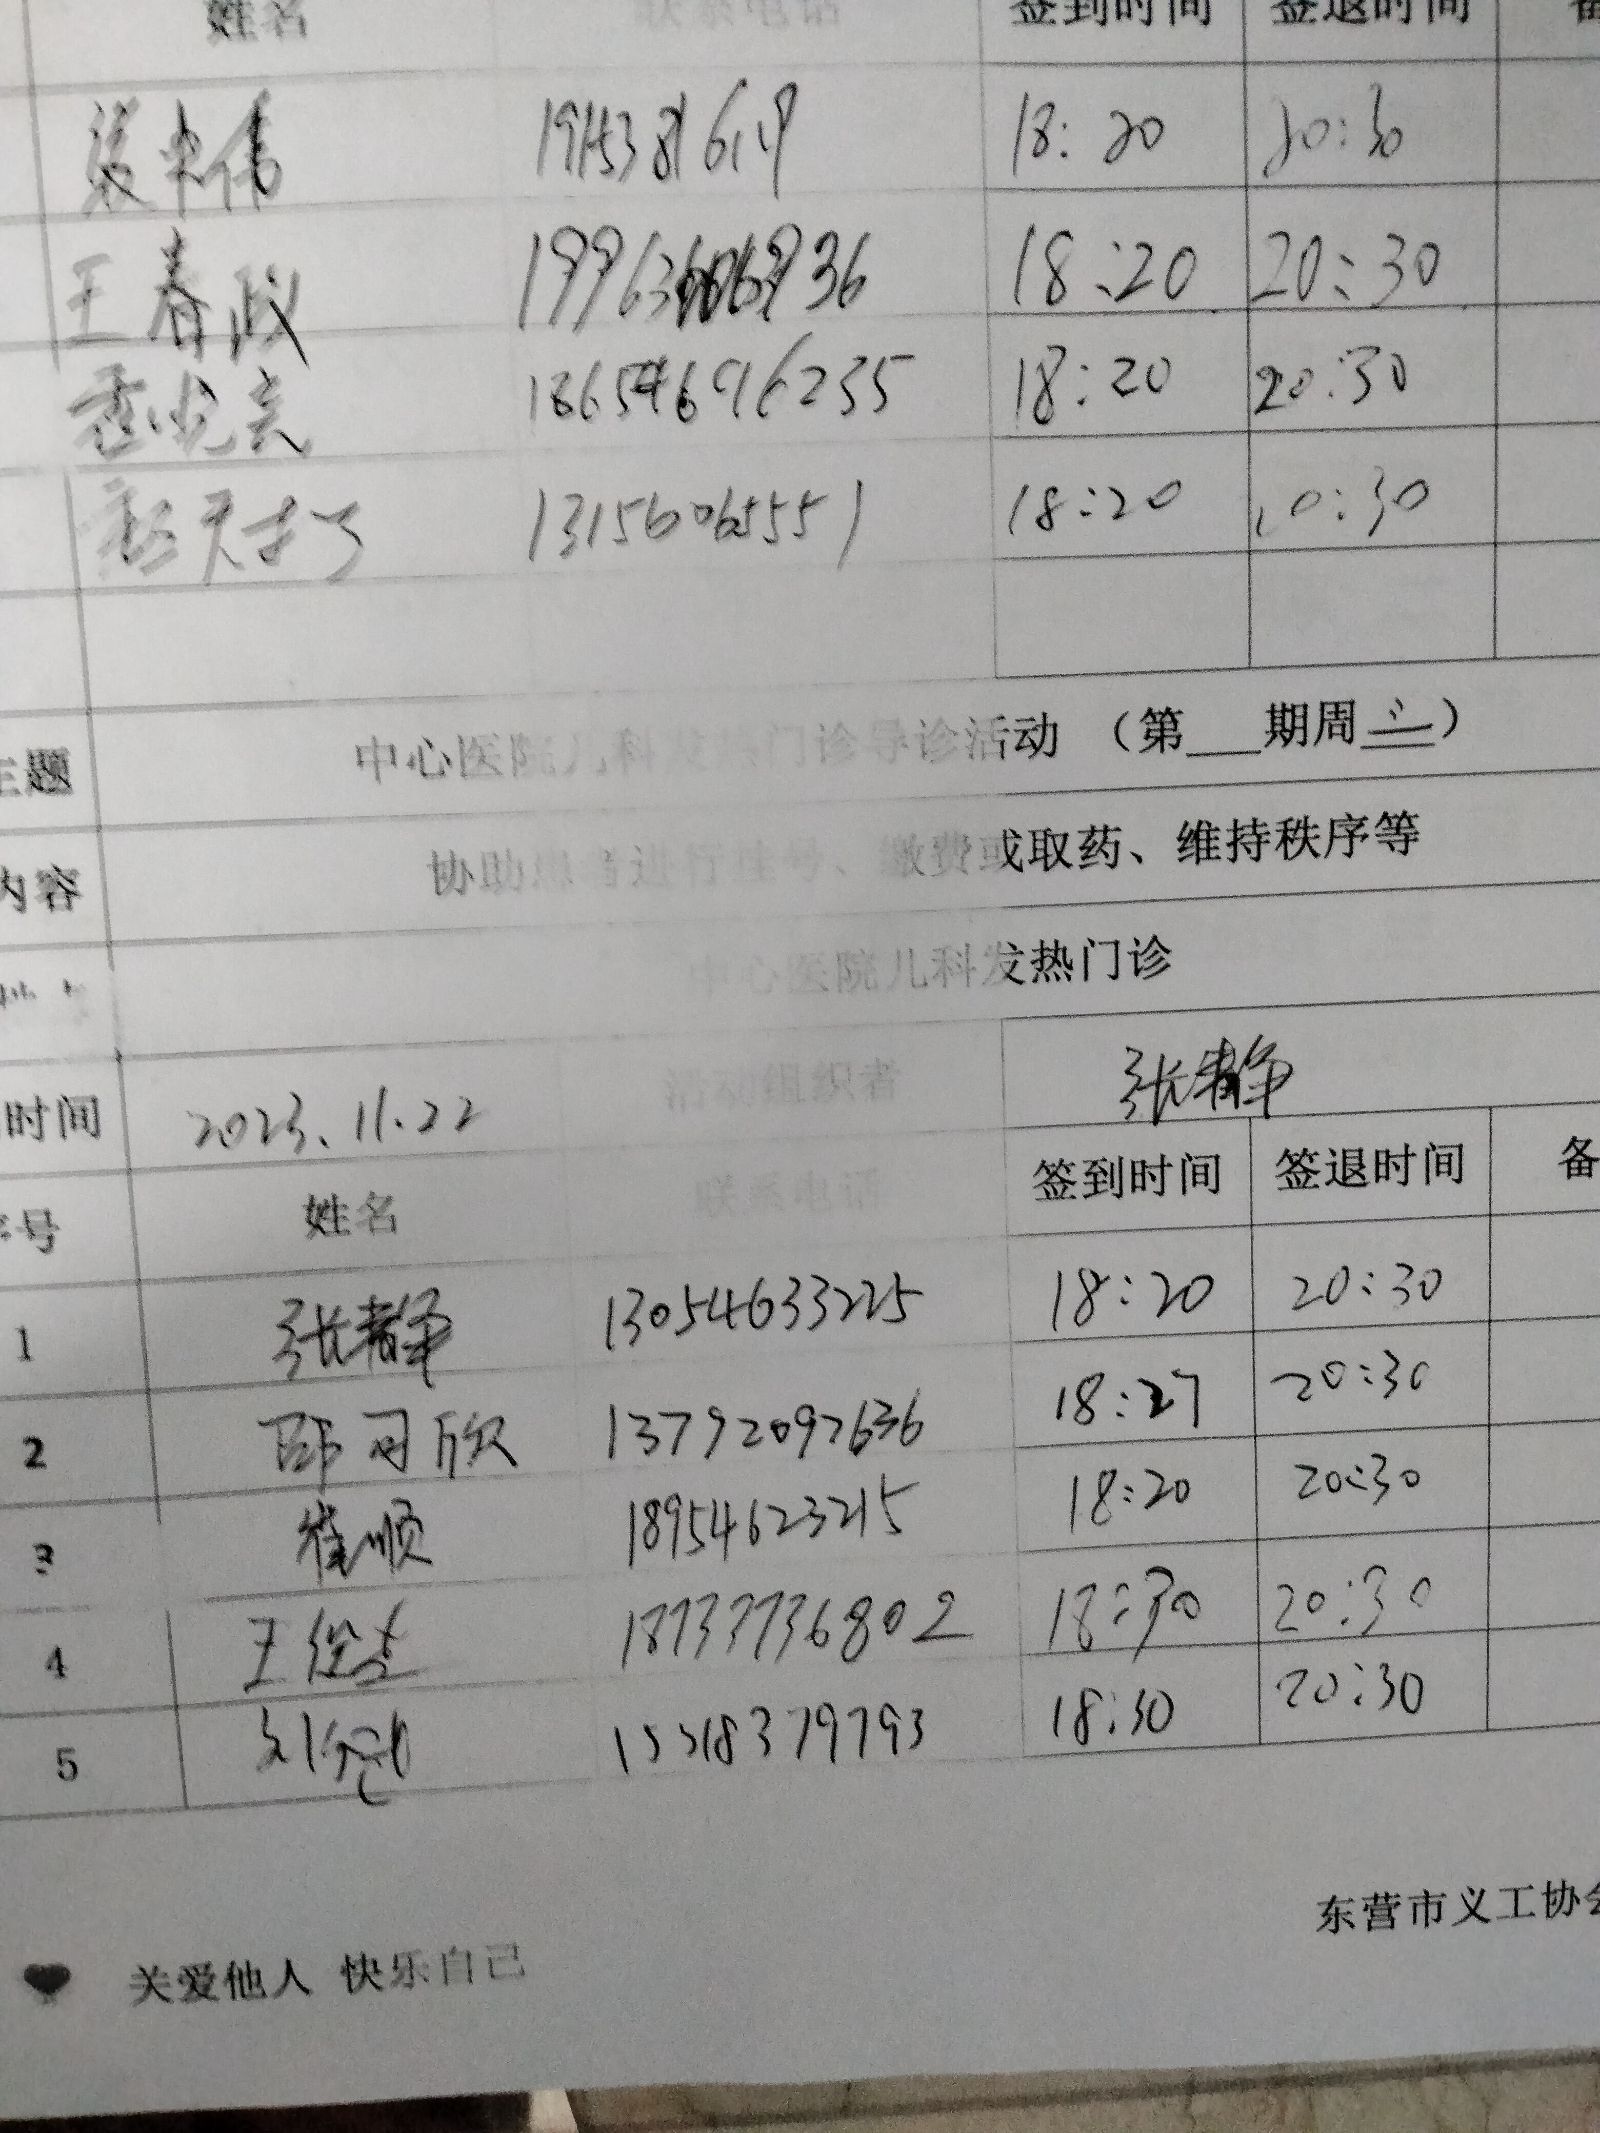 姓名 联系电话 签到时间 签退时间
18:20 20:30
王春政 18:20 20:30
18:20 20:30
13156065551 18:20 20:30
主题 中心医院儿科发热门诊导诊活动 （第___期周三）
内容 协助患者进行挂号、缴费或取药、维持秩序等
中心医院儿科发热门诊
时间 2023.11.22 活动组织者 张静
序号 姓名 联系电话 签到时间 签退时间 备
1 张静 13054633225 18:20 20:30
2 13792092636 18:27 20:30
3 崔顺 18954623215 18:20 20:30
4 18737736802 18:30 20:30
5 18:30 20:30
东营市义工协会
关爱他人 快乐自己